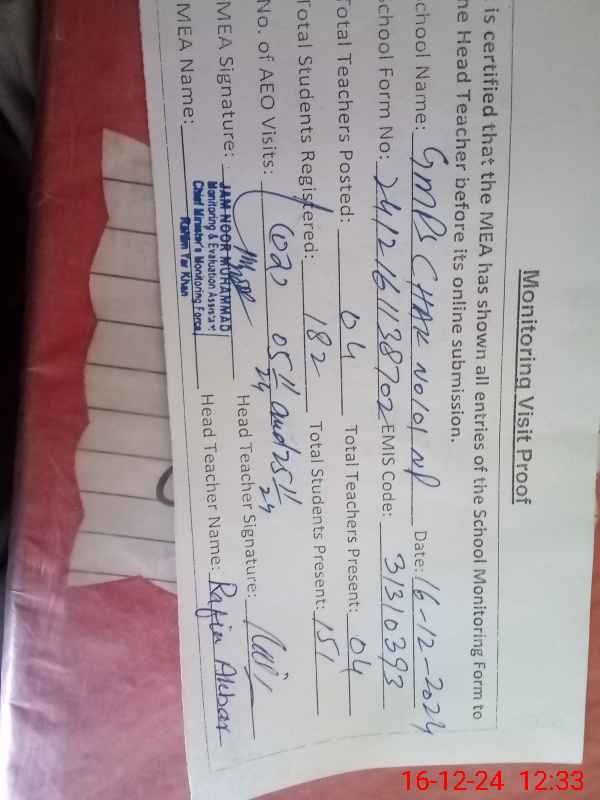 Monitoring Visit Proof
is certified that the MEA has shown all entries of the School Monitoring Form to
he Head Teacher before its online submission.
chool Name: GMPS CHAK No 101 NP Date: 16-12-2024
chool Form No: 241216113870 2 EMIS Code: 31310393
Total Teachers Posted: 04 Total Teachers Present: 04
Total Students Registered: 182 Total Students Present: 151
No. of AEO Visits: 02 05 11/24 and 25 11/24
MEA Signature: Head Teacher Signature:
MEA Name: JAM NOOR MUHAMMAD Head Teacher Name: Akbar
Monitoring & Evaluation Assistant
Chief Minister's Monitoring Force
Rahim Yar Khan
16-12-24 12:33